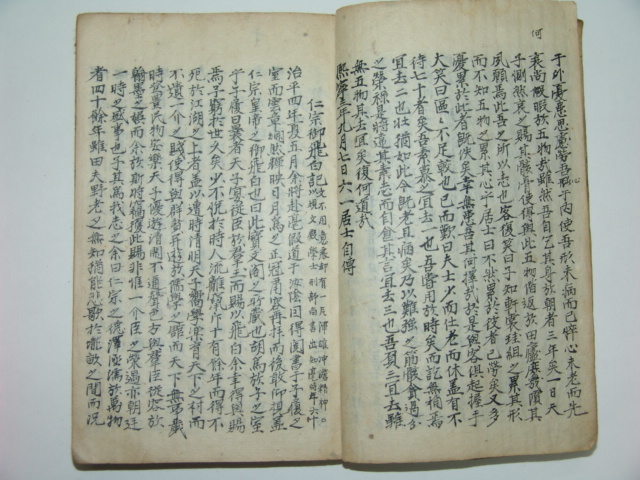 于外憂患思慮勞吾心于內使吾形未病而已悴心未老而先
衰尚何暇於五物哉雖然吾自乞其身於朝者三年矣一日天
子惻然哀之賜其骸骨使得與此五物偕返於田廬庶幾償其
夙願焉此吾之所以志也客復笑曰子知軒裳珪組之累其形
而不知五物之累其心乎居士曰不然累於彼者已勞矣又多
憂累於此者既佚矣幸無患吾其何擇哉於是與客俱起握手
大笑曰區〃不足較也已而歎曰夫士少而仕老而休盖有不
待七十者矣吾素慕之宜去一也吾嘗用於時矣而訖無稱焉
宜去二也壯猶如此今旣老且病矣乃以難強之筋骸貪過分
之榮祿是將違其素志而自食其言宜去三也吾負三宜去雖
無五物其去宜矣復何道哉
熙寧三年九月七日六一居士自傳
仁宗御飛白記
治平四年夏五月余將赴亳假道于汝陰因得閱書于子履之
室而雲章爛然輝映日月爲之正冠肅容再拜而後敢仰視盖
仁宗皇帝之御飛白也曰此寶文閣之所藏也胡爲於子之室
乎子履曰曩者天子宴從臣於羣玉而賜以飛白余幸得與賜
焉予窮於世久矣少不悅於時人流離竄斥十有餘年而得不
死於江湖之上者盖以遭時清明天子嚮學樂育天下之材而
不遺一介之賤使得與群賢並遊於儒學之館而天下無事歲
時豊登民物安樂天子優遊清閒不邇聲色方與羣臣從容於
翰墨之娛而余於斯時竊獲此賜非惟一介臣之榮遇亦朝廷
一時之盛事也子其爲我志之余曰仁宗之德澤涵濡於萬物
者四十餘年雖田夫野老之無知猶能悲歌於壠畝之間而況